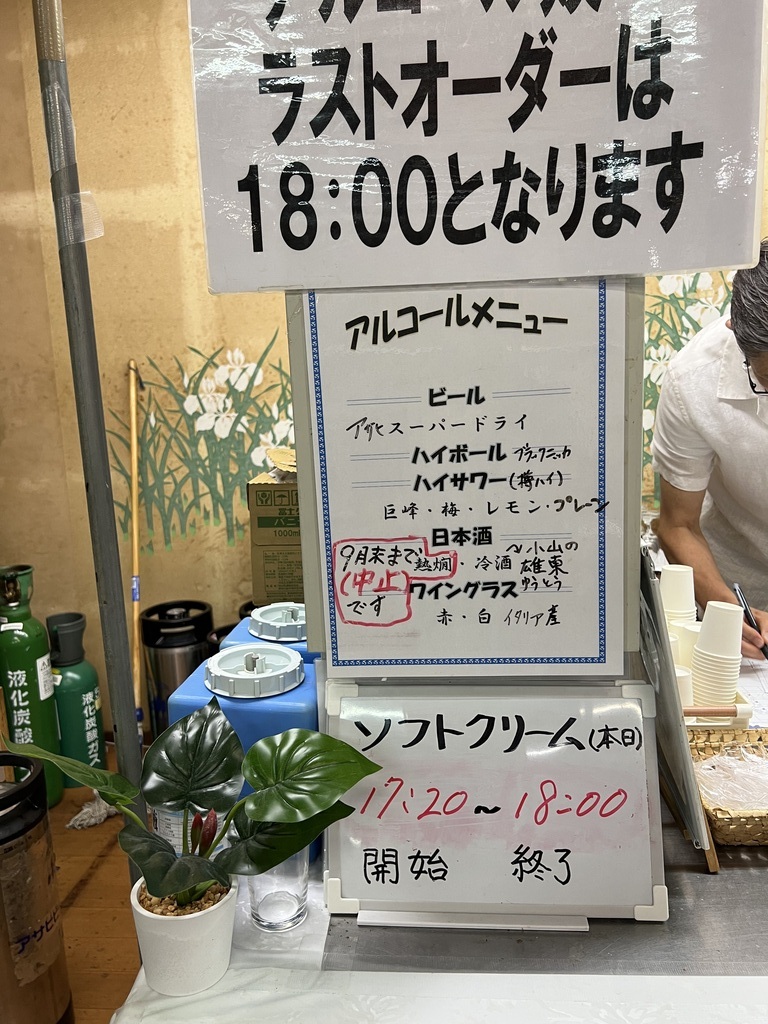 アルコール
ラストオーダーは
18:00となります
アルコールメニュー
ビール
アサヒスーパードライ
ハイボール ブラックニッカ
ハイサワー(樽ハイ)
巨峰・梅・レモン・プレーン
日本酒
熱燗・冷酒 〜小山の
雄東
ゆうとう
9月末まで
(中止)
です
ワイングラス
赤・白 イタリア産
ソフトクリーム(本日)
17:20~18:00
開始 終了
液化炭酸
液化炭酸ガス
バニ
1000ml
アサヒビ